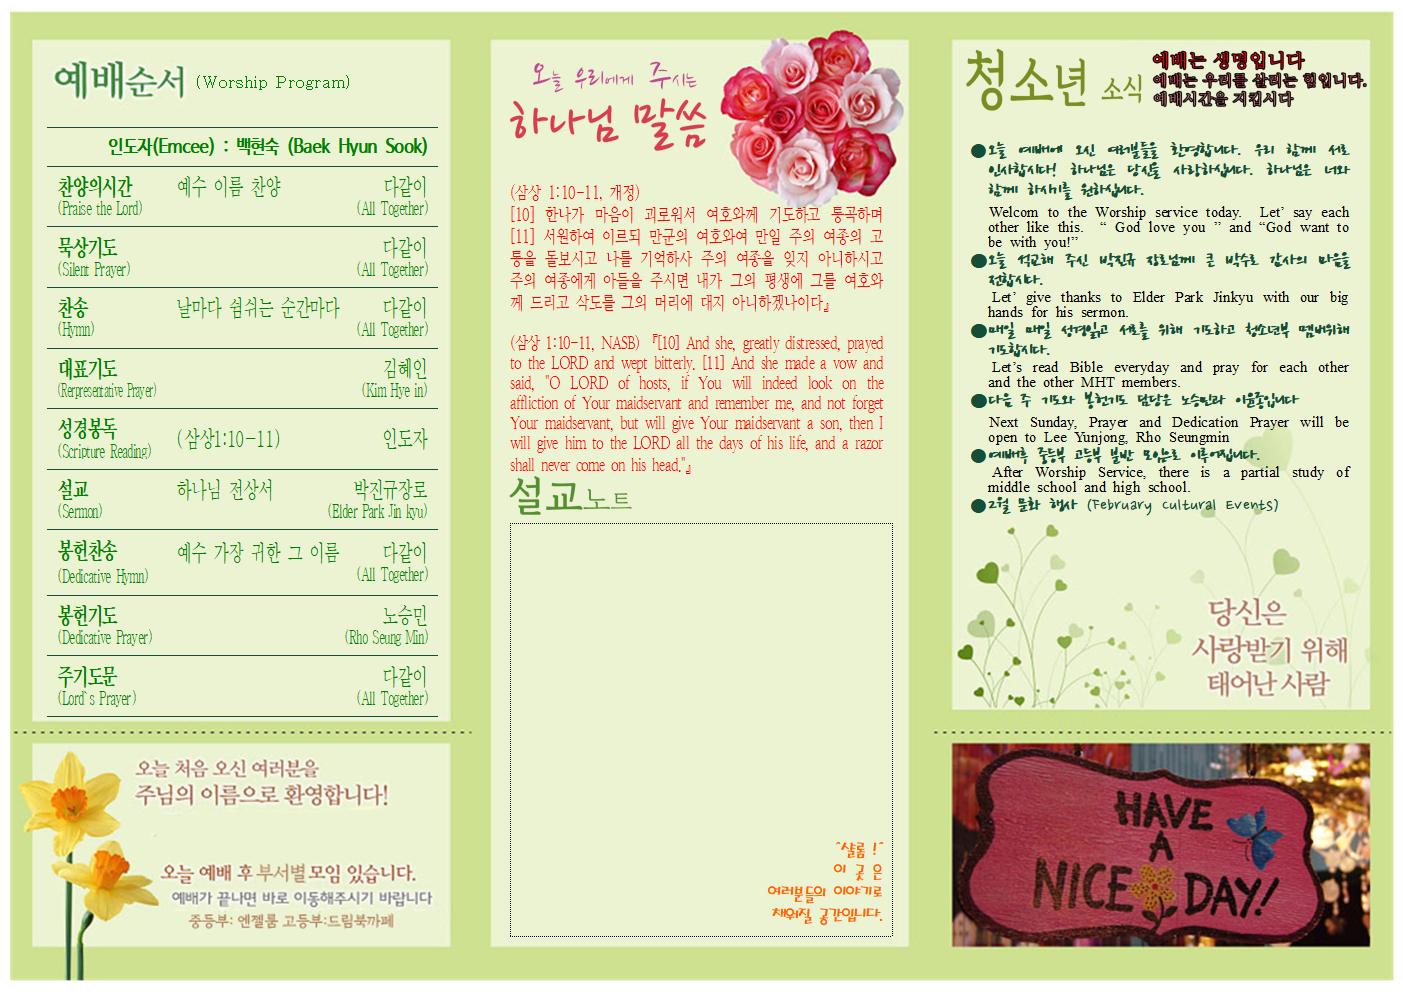 예배순서 (Worship Program)
인도자(Emcee) : 백현숙 (Baek Hyun Sook)
찬양의시간 예수 이름 찬양 다같이
(Praise the Lord) (All Together)
묵상기도 다같이
(Silent Prayer) (All Together)
찬송 날마다 쉼쉬는 순간마다 다같이
(Hymn) (All Together)
대표기도 김혜인
(Rerpresentative Prayer) (Kim Hye in)
성경봉독 (삼상1:10-11) 인도자
(Scripture Reading)
설교 하나님 전상서 박진규장로
(Sermon) (Elder Park Jin kyu)
봉헌찬송 예수 가장 귀한 그 이름 다같이
(Dedicative Hymn) (All Together)
봉헌기도 노승민
(Dedicative Prayer) (Rho Seung Min)
주기도문 다같이
(Lord`s Prayer) (All Together)
오늘 처음 오신 여러분을
주님의 이름으로 환영합니다!
오늘 예배 후 부서별 모임 있습니다.
예배가 끝나면 바로 이동해주시기 바랍니다
중등부: 엔젤룸 고등부:드림북까페
오늘 우리에게 주시는
하나님 말씀
(삼상 1:10-11, 개정)
[10] 한나가 마음이 괴로워서 여호와께 기도하고 통곡하며
[11] 서원하여 이르되 만군의 여호와여 만일 주의 여종의 고
통을 돌보시고 나를 기억하사 주의 여종을 잊지 아니하시고
주의 여종에게 아들을 주시면 내가 그의 평생에 그를 여호와
께 드리고 삭도를 그의 머리에 대지 아니하겠나이다』
(삼상 1:10-11, NASB) 『[10] And she, greatly distressed, prayed
to the LORD and wept bitterly. [11] And she made a vow and
said, "O LORD of hosts, if You will indeed look on the
affliction of Your maidservant and remember me, and not forget
Your maidservant, but will give Your maidservant a son, then I
will give him to the LORD all the days of his life, and a razor
shall never come on his head."』
설교노트
^샬롬 !^
이 곳 은
여러분들의 이야기로
채워질 공간입니다.
청소년 소식
예배는 생명입니다
예배는 우리를 살리는 힘입니다.
예배시간을 지킵시다
●오늘 예배에 오신 여러분들을 환영합니다. 우리 함께 서로
인사합시다! 하나님은 당신을 사랑하십니다. 하나님은 너와
함께 하시기를 원하십니다.
Welcom to the Worship service today. Let' say each
other like this. “ God love you ” and “God want to
be with you!”
●오늘 설교해 주신 박진규 장로님께 큰 박수로 감사의 마음을
전합시다.
Let' give thanks to Elder Park Jinkyu with our big
hands for his sermon.
●매일 매일 성경읽고 서로를 위해 기도하고 청소년부 멤버위해
기도합시다.
Let's read Bible everyday and pray for each other
and the other MHT members.
●다음 주 기도와 봉헌기도 담당은 노승민과 이윤종입니다
Next Sunday, Prayer and Dedication Prayer will be
open to Lee Yunjong, Rho Seungmin
●예배후 중등부 고등부 분반 모임으로 이루어집니다.
After Worship Service, there is a partial study of
middle school and high school.
●2월 문화 행사 (February Cultural Events)
당신은
사랑받기 위해
태어난 사람
HAVE
A
NICE DAY!